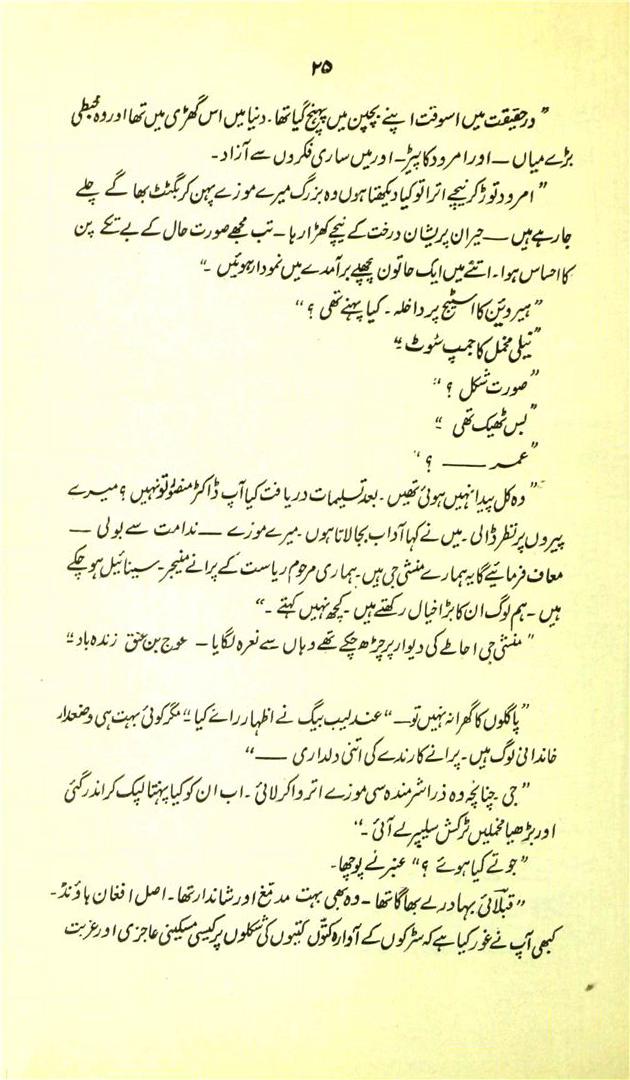 ۲۵
” درحقیقت میں اسوقت اپنے بچپن میں پہنچ گیا تھا۔ دنیا میں اس گھڑی میں تھا اور وہ خبطی
بڑے میاں — اور امرود کا پیڑ — اور میں ساری فکروں سے آزاد۔
” امرود توڑ کر نیچے اترا تو کیا دیکھتا ہوں وہ بزرگ میرے موزے پہن کر بگٹٹ بھاگے چلے
جا رہے ہیں — حیران پریشان درخت کے نیچے کھڑا رہا — تب مجھے صورت حال کے بے تکے پن
کا احساس ہوا۔ اتنے میں ایک خاتون پچھلے برآمدے میں نمودار ہوئیں۔“
” ہیروئین کا اسٹیج پر داخلہ۔ کیا پہنے تھی ؟“
” نیلی مخمل کا جمپ سوٹ۔“
” صورت شکل ؟“
” بس ٹھیک تھی “
” عمر —— ؟“
” وہ کل پیدا نہیں ہوئی تھیں۔ بعد تسلیمات دریافت کیا آپ ڈاکٹر منصور تو نہیں ؟ میرے
پیروں پر نظر ڈالی۔ میں نے کہا آداب بجا لاتا ہوں۔ میرے موزے —— ندامت سے بولی —
معاف فرمائیے گا یہ ہمارے منشی جی ہیں۔ ہماری مرحوم ریاست کے پرانے منیجر۔ سینائیل ہو چکے
ہیں۔ ہم لوگ ان کا بڑا خیال رکھتے ہیں۔ کچھ نہیں کہتے۔“
” منشی جی احاطے کی دیوار پر چڑھ چکے تھے وہاں سے نعرہ لگایا — عوج بن عنق زندہ باد“
” پاگلوں کا گھرانہ نہیں تو —“ عندلیب بیگ نے اظہار رائے کیا ” مگر کوئی بہت ہی وضعدار
خاندانی لوگ ہیں۔ پرانے کارندے کی اتنی دلداری ——“
” جی۔ چنانچہ وہ ذرا شرمندہ سی موزے اتروا کر لائی۔ اب ان کو کیا پہنتا لپک کر اندر گئی
اور بڑھیا مخملیں ٹرکش سلیپر لے آئی۔“
” جوتے کیا ہوئے ؟“ عنبر نے پوچھا۔
” قبلائی بہادر لے بھاگا تھا — وہ بھی بہت مدمغ اور شاندار تھا۔ اصل افغان ہاؤنڈ۔
کبھی آپ نے غور کیا ہے کہ سڑکوں کے آوارہ کتوں کتیوں کی شکلوں پر کیسی مسکینی عاجزی اور غربت